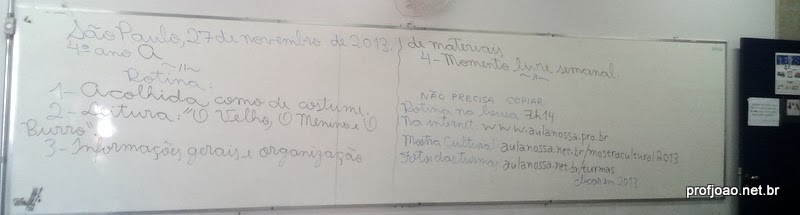 São Paulo, 27 de novembro de 2013.
4º ano A
Rotina:
1- Acolhida como de costume.
2- Leitura: "O Velho, O Menino e O
Burro".
3- Informações gerais e organização
de materiais.
4- Momento livre semanal.
NÃO PRECISA COPIAR
Rotina na lousa 7h14
Na internet: www.aulanossa.pro.br
Mostra Cultural: aulanossa.net.br/mostracultural2013
Fotos das turmas: aulanossa.net.br/turmas
clicar em 2013
profjoao.net.br